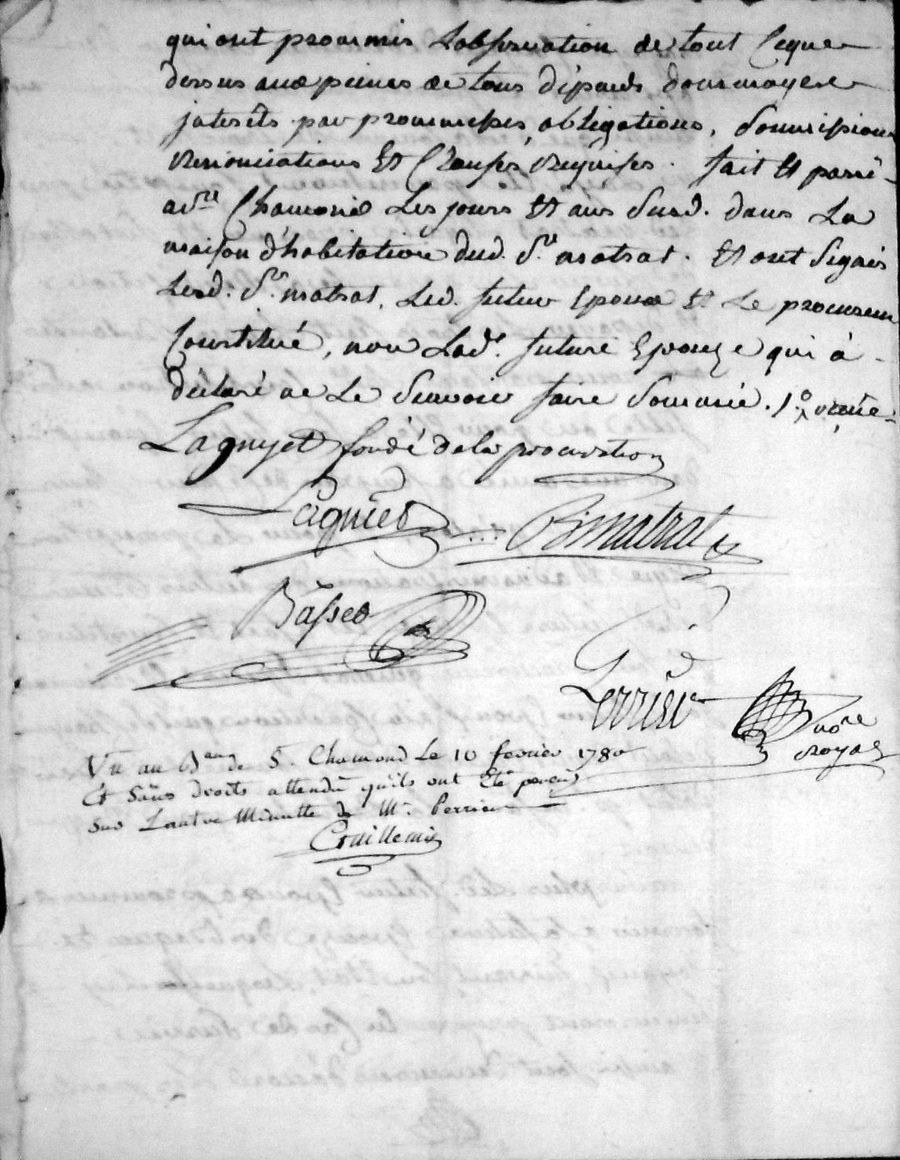 qui ont proummis Lobservation de tout Ceque
dessus aux peines de tous dépends dommages
jnterêts par proummesses, obligations, Soumissions
Renonciations Et Clauses, requises. fait Et passé
a St Chamond Les jours Et ans Susd. dans La
maison d'habitation dud. Sr. matrat. Et ont Signés
Lesd. Sr. matrat, Led. futur Epoux Et Le procureur
Constitué, non Lade. future Epouze qui à
déclaré ne Le Scavoir faire Sommée.
Lagnyet fondé de la procuration
Lagniet Matrat
Basseo
Perrier nore
Royal
Vu au Bau de St. Chamond Le 10 fevrier 1780
Et Sans droits attendu qu'ils ont Eté percus
sur L'autre Minutte de Me. Perrier